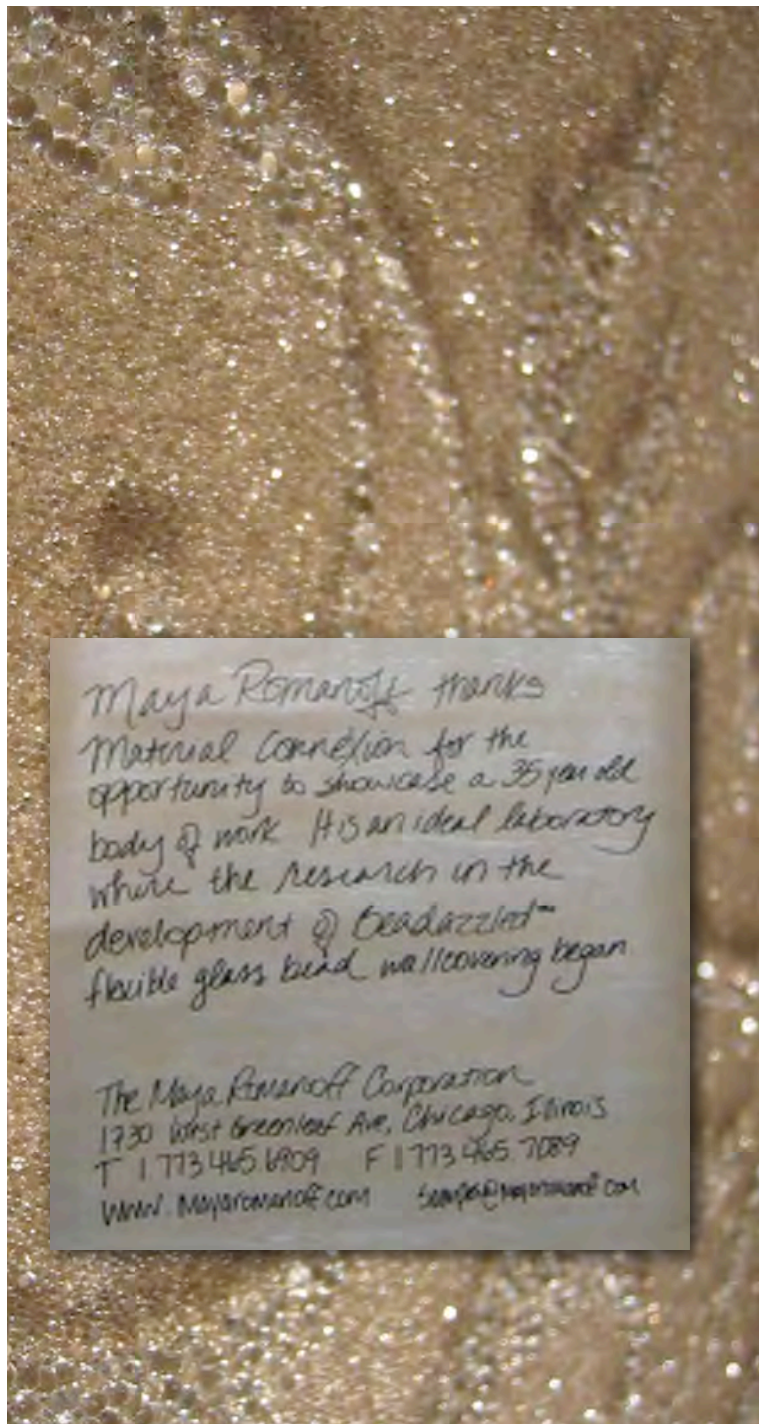 Maya Romanoff thanks
Material Connexion for the
opportunity to showcase a 35 year old
body of work It is an ideal laboratory
where the research in the
development of Beadazzled™
flexible glass bead wallcovering began
The Maya Romanoff Corporation
1730 West Greenleaf Ave, Chicago, Illinois
T 1 773 465.6909 F 1 773 465.7089
www.mayaromanoff.com